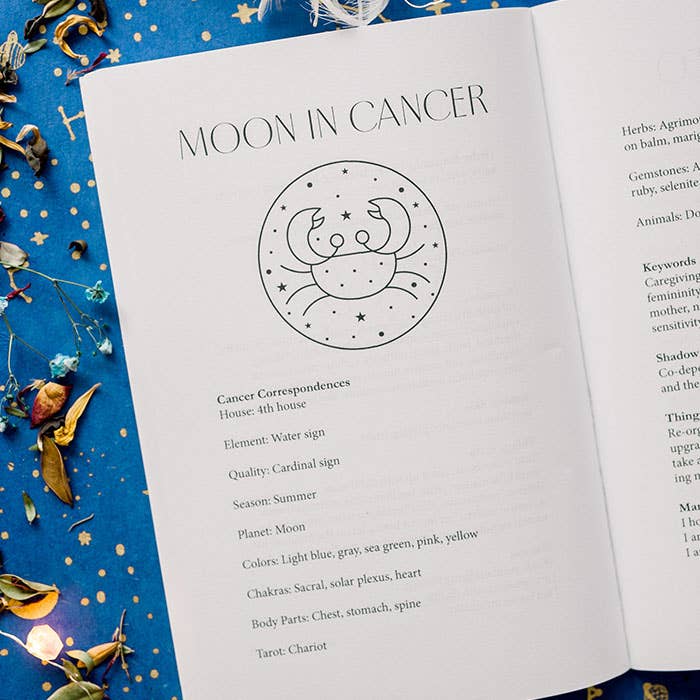 MOON IN CANCER
Cancer Correspondences
House: 4th house
Element: Water sign
Quality: Cardinal sign
Season: Summer
Planet: Moon
Colors: Light blue, gray, sea green, pink, yellow
Chakras: Sacral, solar plexus, heart
Body Parts: Chest, stomach, spine
Tarot: Chariot
Herbs:
on balm,
Gemstones:
ruby, selenite
Animals:
Keywords
Caregiving
femininity
mother,
sensitivity
Shadow
and the
upgra
take
I
I
I